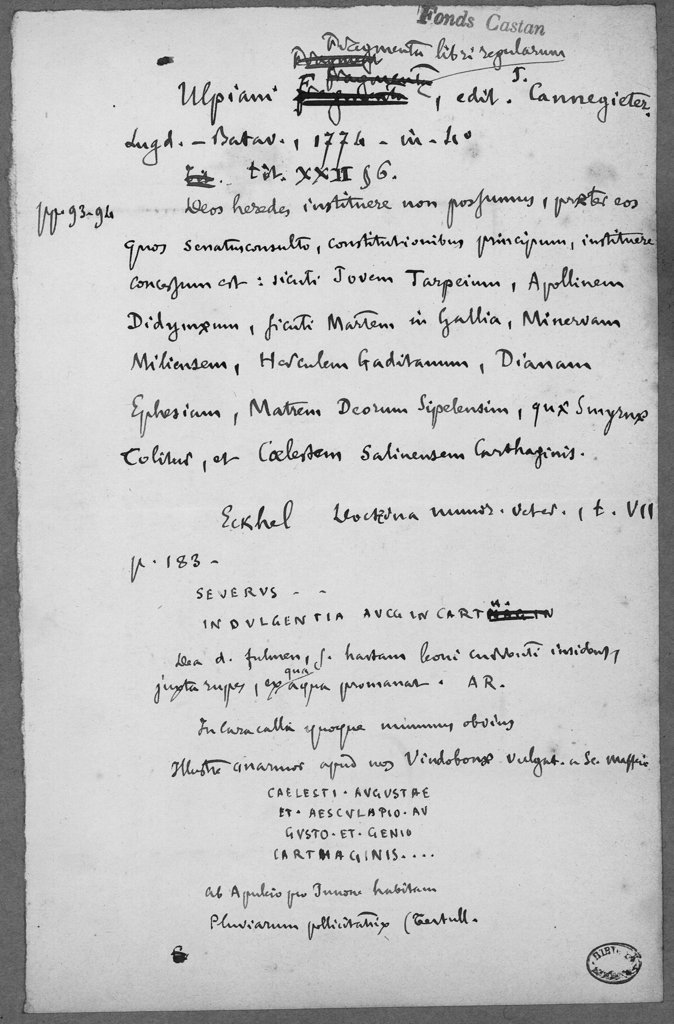 Fonds Castan
Fragmentu libri regularum
Ulpiani , edit. J. Cannegieter.
Lugd. - Batav. , 1774 - in - 4o
tit. XXII § 6.
pp. 93-94
Deos heredes instituere non possumus, præter eos
quos senatusconsulto, constitutionibus principum, instituere
concessum est : sicuti Jovem Tarpeium, Apollinem
Didymæum, sicuti Martem in Gallia, Minervam
Miliensem, Herculem Gaditanum, Dianam
Ephesiam, Matrem Deorum Sipelensim, quæ Smyrnæ
Colitur, et Cœlestem Salinensem Carthaginis.
Eckhel Doctrina numor. veter. , t. VII
p. 183 -
SEVERVS - -
INDVLGENTIA AVGG IN CART
Dea d. fulmen, s. hastam leoni currenti insidens,
juxta rupes, ex qua aqua promanat. AR.
In Caracalla quoque nummus obvius
Illustre marmor apud nos Vindobonæ vulgat. a Sc. Maffeio
CAELESTI · AVGVSTAE
ET · AESCVLAPIO · AV
GVSTO · ET · GENIO
CARTHAGINIS....
ab Apuleio pro Junone habitam
Pluviarum pollicitatrix (Tertull.